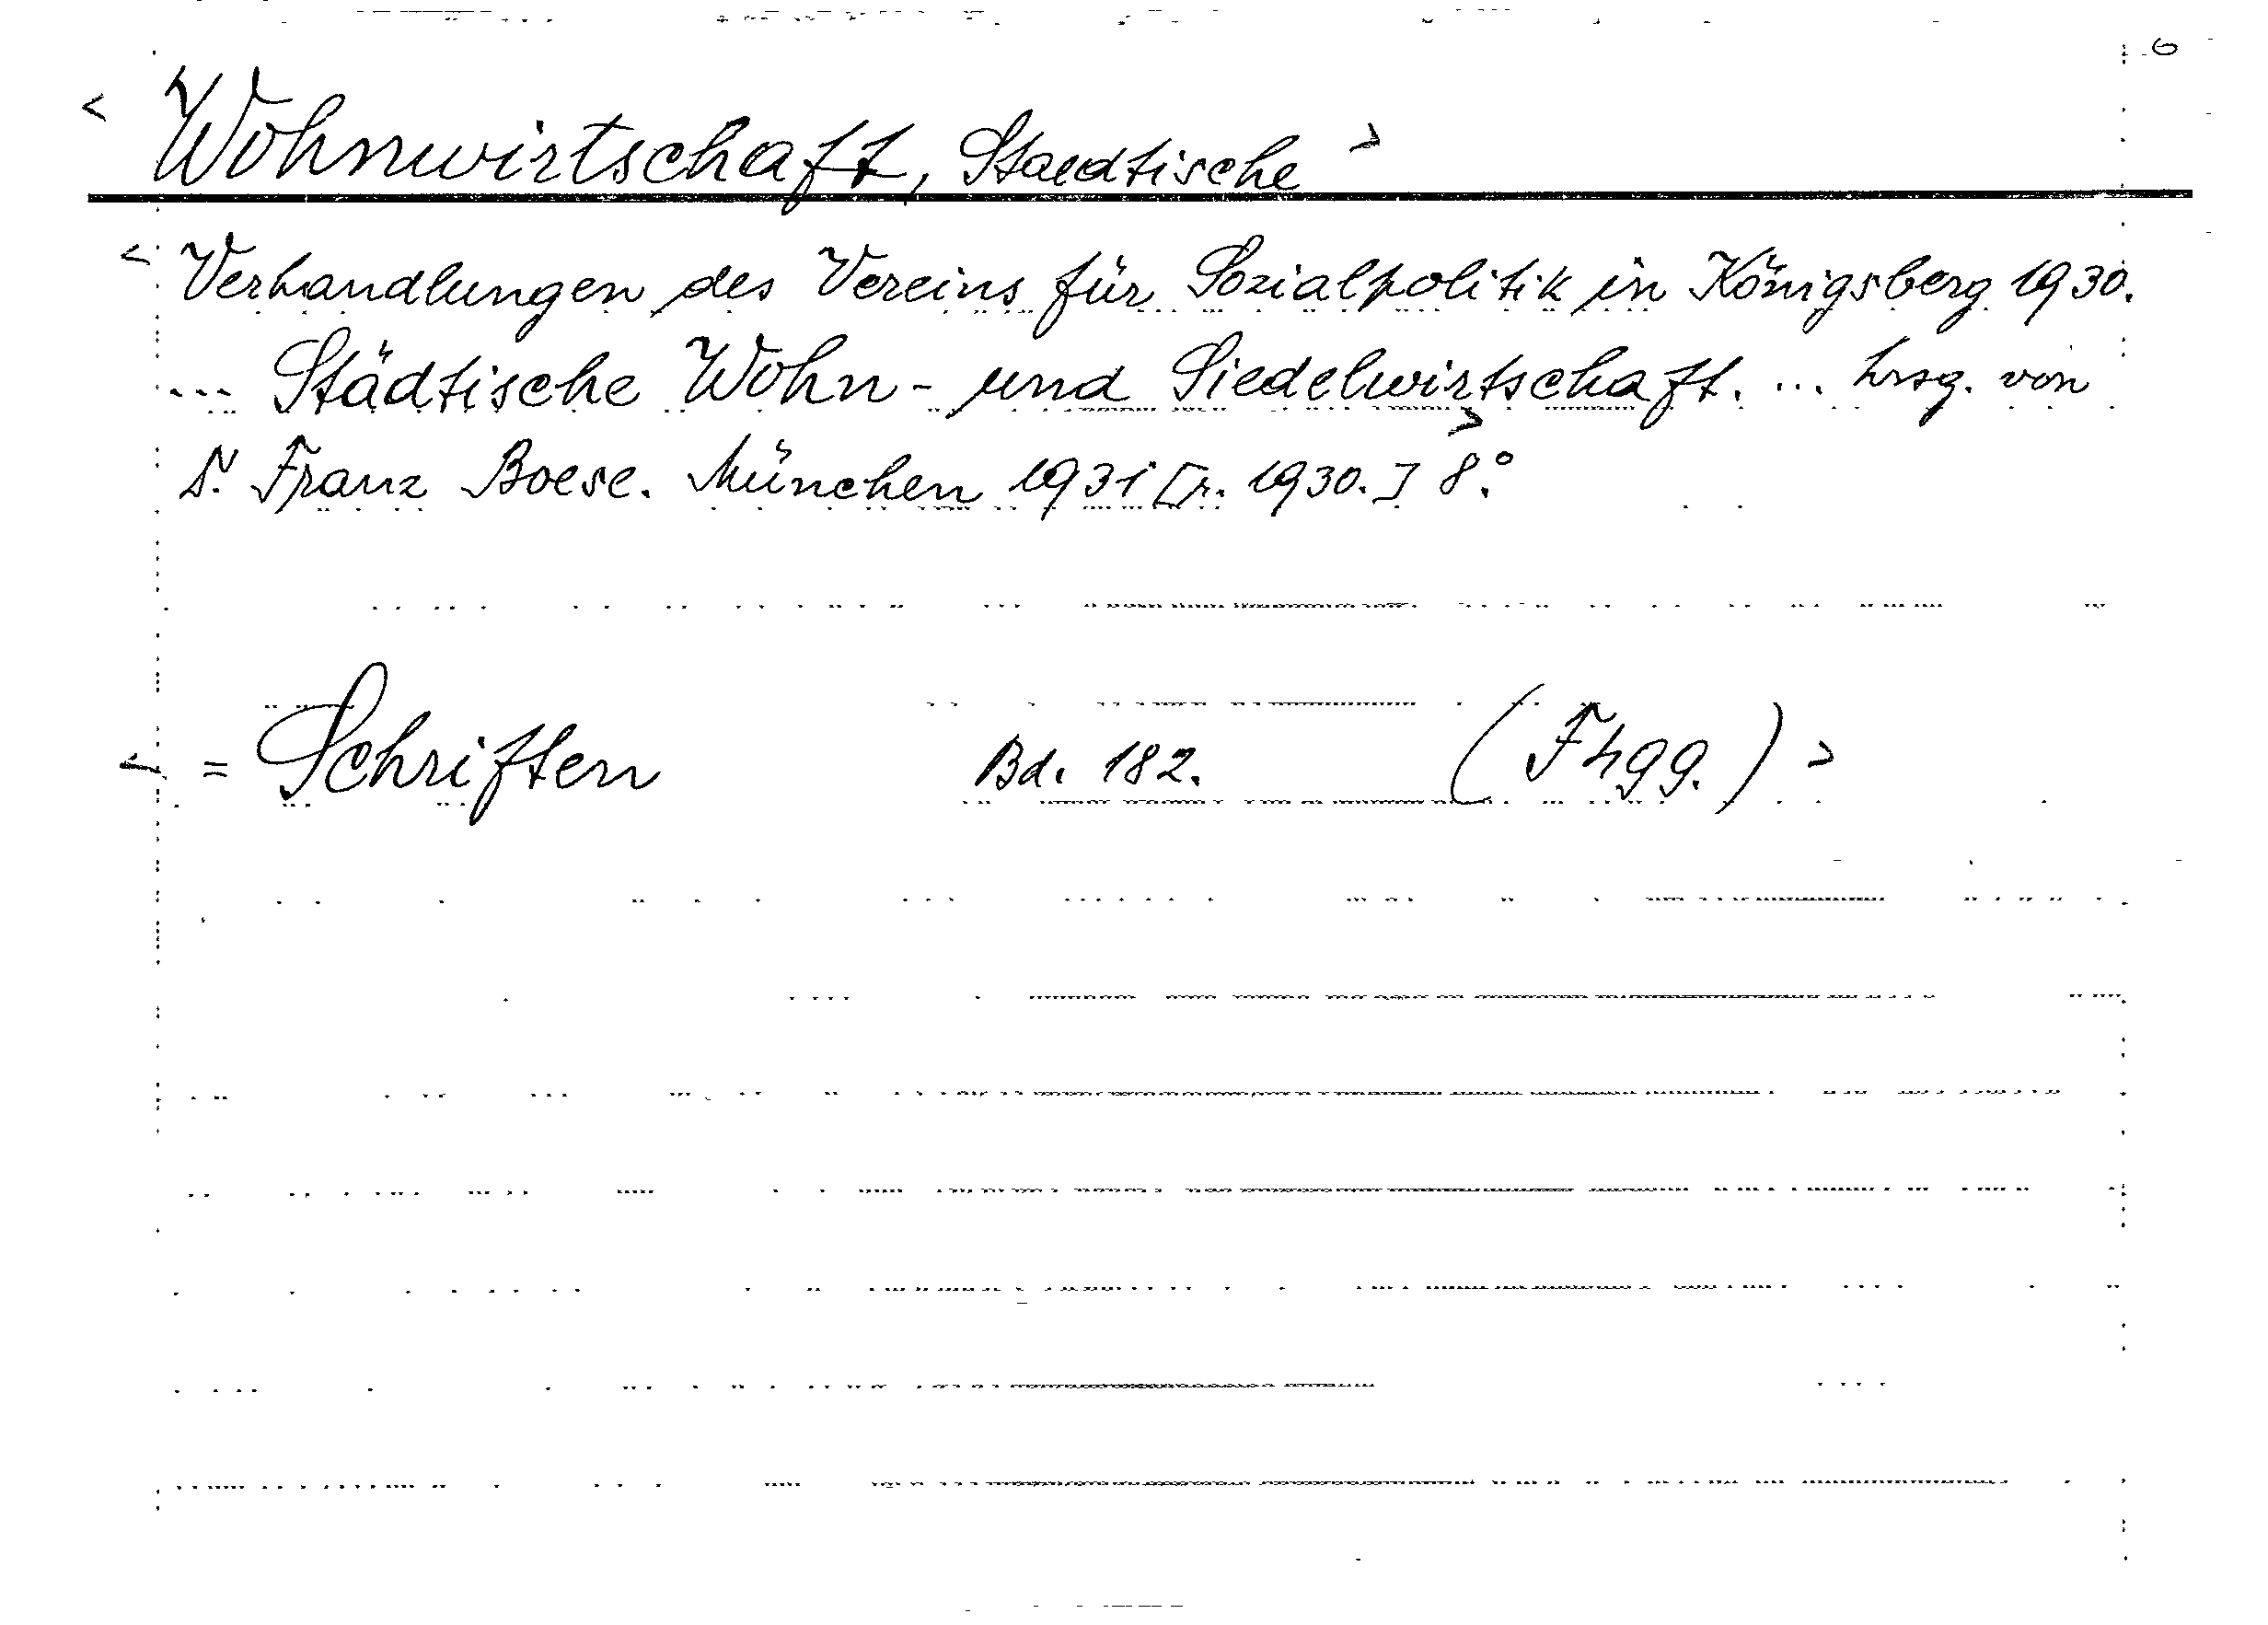 < Wohnwirtschaft, Staedtische >
< Verhandlungen des Vereins für Sozialpolitik in Königsberg 1930.
... Städtische Wohn- und Siedelwirtschaft. ... hrsg. von
Dr. Franz Boese. München 1931 [r. 1930.] > 8.°
< = Schriften Bd. 182. (F499.) >